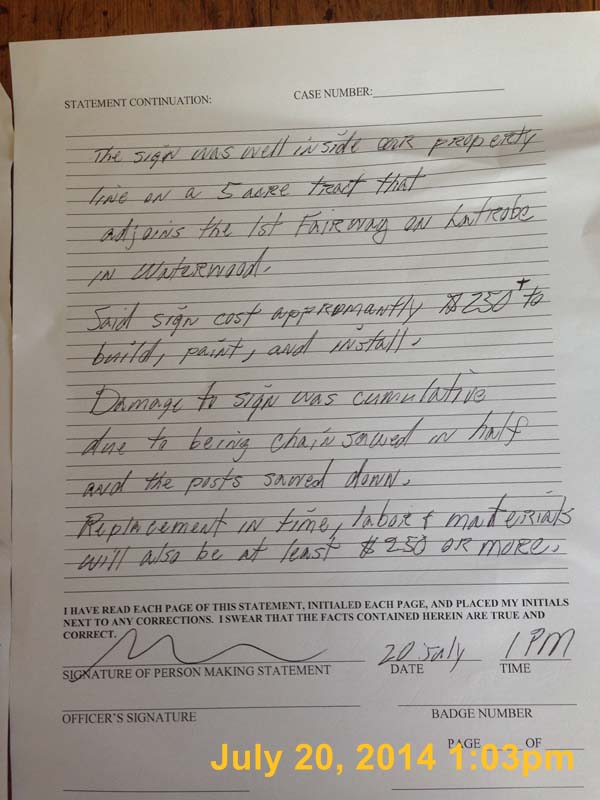 STATEMENT CONTINUATION: CASE NUMBER:
The sign was well inside our property
line on a 5 acre tract that
adjoins the 1st Fairway on Latrobe
in Waterwood.
Said sign cost appromantly $250+ to
build, paint, and install.
Damage to sign was cumulative
due to being chain sawed in half
and the posts sawed down.
Replacement in time, labor & materials
will also be at least $250 or more.
I HAVE READ EACH PAGE OF THIS STATEMENT, INITIALED EACH PAGE, AND PLACED MY INITIALS
NEXT TO ANY CORRECTIONS. I SWEAR THAT THE FACTS CONTAINED HEREIN ARE TRUE AND
CORRECT.
20 july 1 PM
SIGNATURE OF PERSON MAKING STATEMENT DATE TIME
OFFICER'S SIGNATURE BADGE NUMBER
PAGE OF
July 20, 2014 1:03pm